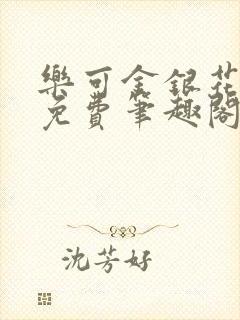 樂可金銀花
免費筆趣閣
沈芳好